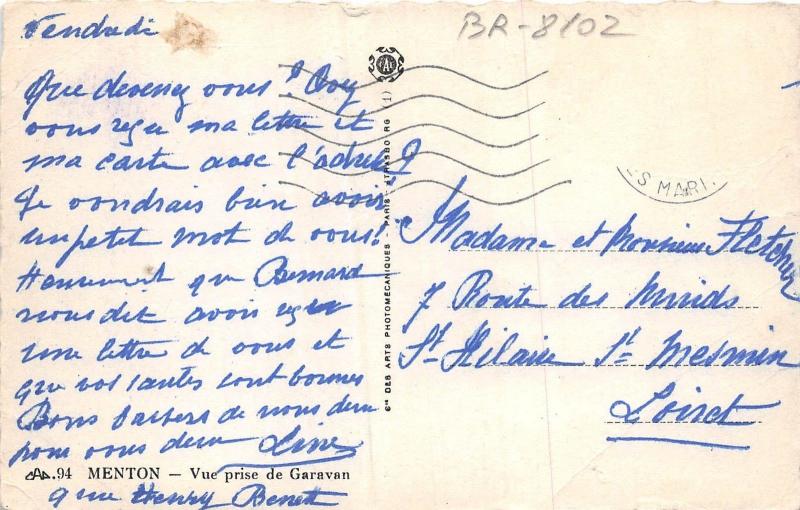 Vendredi
BR-8102
Que devenez vous? Avez
vous reçu ma lettre et
ma carte avec l'adresse?
Je voudrais bien avoir
un petit mot de vous!
Heureusement que Bernard
nous dit avoir reçu
une lettre de vous et
que vos santés sont bonnes
Bons baisers de nous deux
pour vous deux Line
94 MENTON — Vue prise de Garavan
que Henry Benett
Cie DES ARTS PHOTOMÉCANIQUES - PARIS - STRASBOURG (1)
S MARI
Madame et Monsieur Fletcher
7 Route des Muids
St Hilaire St Mesmin
Loiret